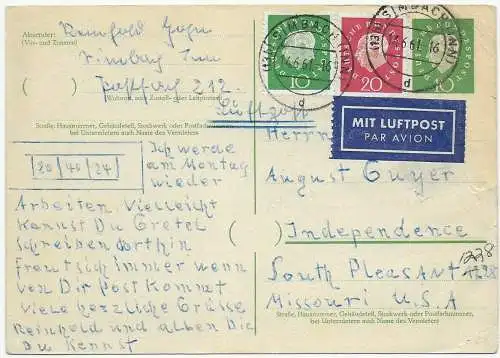 Absender:
(Vor- und Zuname)
Reinhold
Postfach 212
(Wohnort, auch Zustell- oder Leitpostamt)
Straße, Hausnummer, Gebäudeteil, Stockwerk oder Postfachnummer,
bei Untermietern auch Name des Vermieters
80/40/24
Ich werde
am Montag
wieder
Arbeiten. Vielleicht
kannst Du Gretel
schreiben dorthin
freut sich immer wenn
von Dir Post kommt
viele herzliche Grüsse
Reinhold und allen Die
Du kennst
DEUTSCHE BUNDESPOST
10
20
10
14.6.61-16
d
14.6.61-16
d
Luftpost
MIT LUFTPOST
PAR AVION
Herrn
August Guyer
Independence
1228
South Pleasant
Missouri U.S.A
Straße, Hausnummer, Gebäudeteil, Stockwerk oder Postfachnummer,
bei Untermietern auch Name des Vermieters